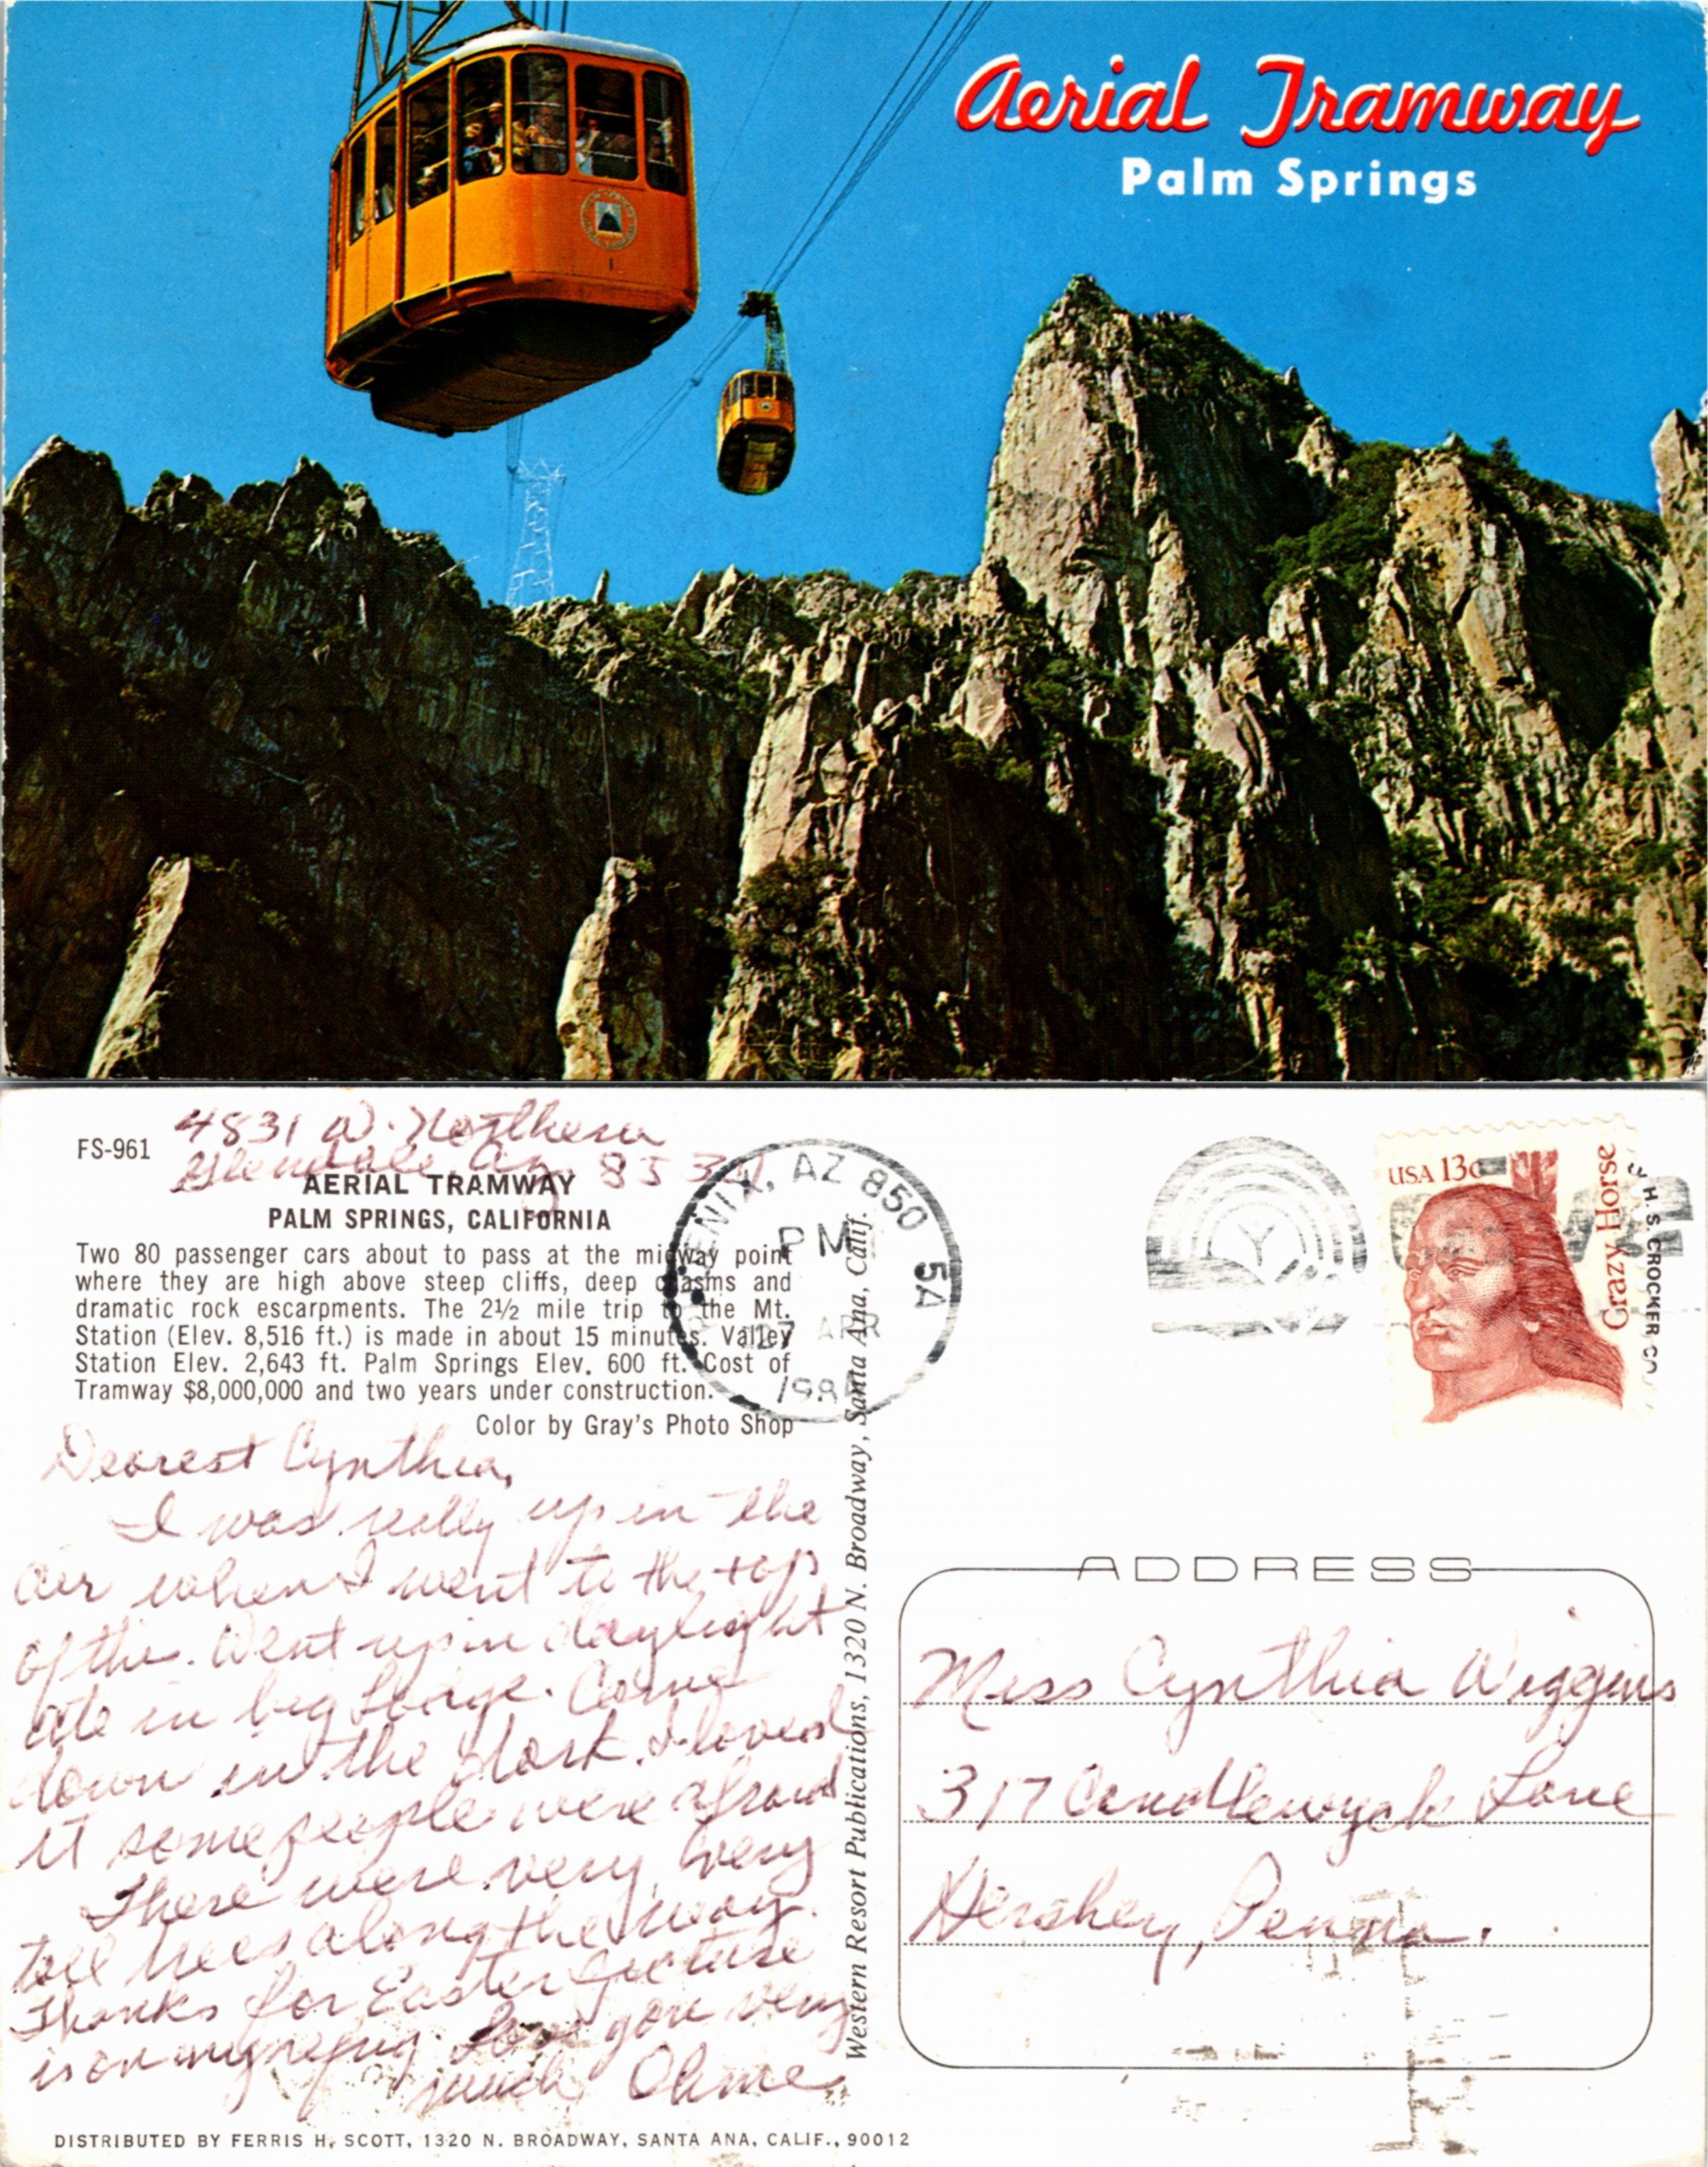 Aerial Tramway
Palm Springs
1
4831 W. Northern
Glendale, Az. 853
FS-961
AERIAL TRAMWAY
PALM SPRINGS, CALIFORNIA
Two 80 passenger cars about to pass at the midway point
where they are high above steep cliffs, deep chasms and
dramatic rock escarpments. The 2½ mile trip to the Mt.
Station (Elev. 8,516 ft.) is made in about 15 minutes. Valley
Station Elev. 2,643 ft. Palm Springs Elev. 600 ft. Cost of
Tramway $8,000,000 and two years under construction.
Color by Gray's Photo Shop
Dearest Cynthia,
I was really up in the
air when I went to the top
of this. Went up in daylight
ate in big Lodge. Came
down in the dark. I loved
it some people were afraid
There were very, very
tall trees along the way.
Thanks for Easter picture
is on my refrig. Love you very
much
DISTRIBUTED BY FERRIS H. SCOTT, 1320 N. BROADWAY, SANTA ANA, CALIF., 90012
Western Resort Publications, 1320 N. Broadway, Santa Ana, Calif.
PHOENIX, AZ 850 5A
PM
27 APR
198
USA 13c
Crazy Horse
H. S. CROCKER CO
ADDRESS
Miss Cynthia Wiggins
317 Candlewyck Lane
Hershey, Penna.